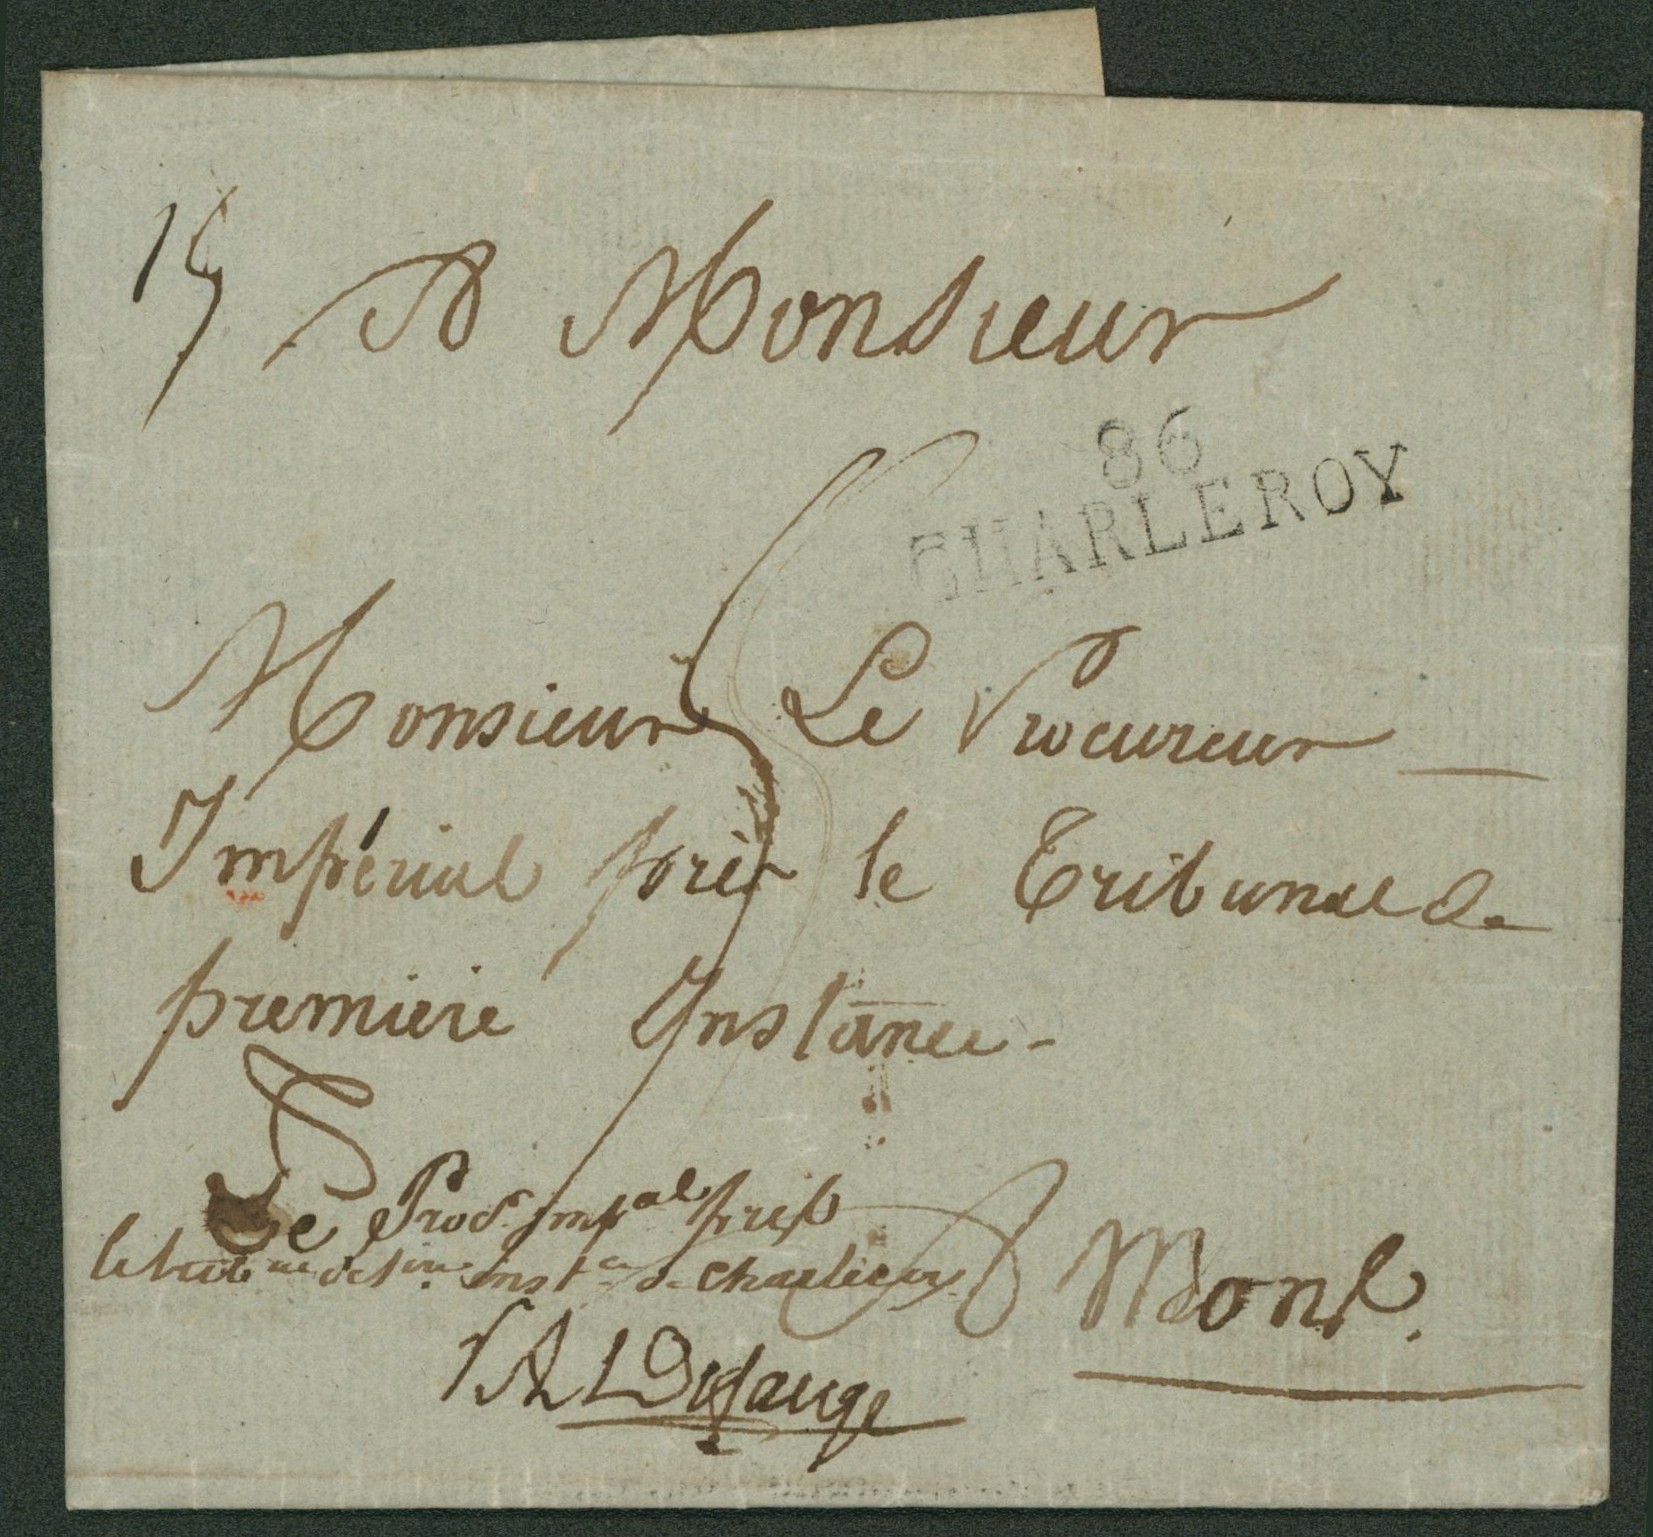 A Monsieur
86
CHARLEROY
Monsieur Le Procureur
Impérial près le Tribunal de
premiere Instance
Le Proc. imp.al près
le trib. de 1.re Inst.ce de Charleroy
A Mons.